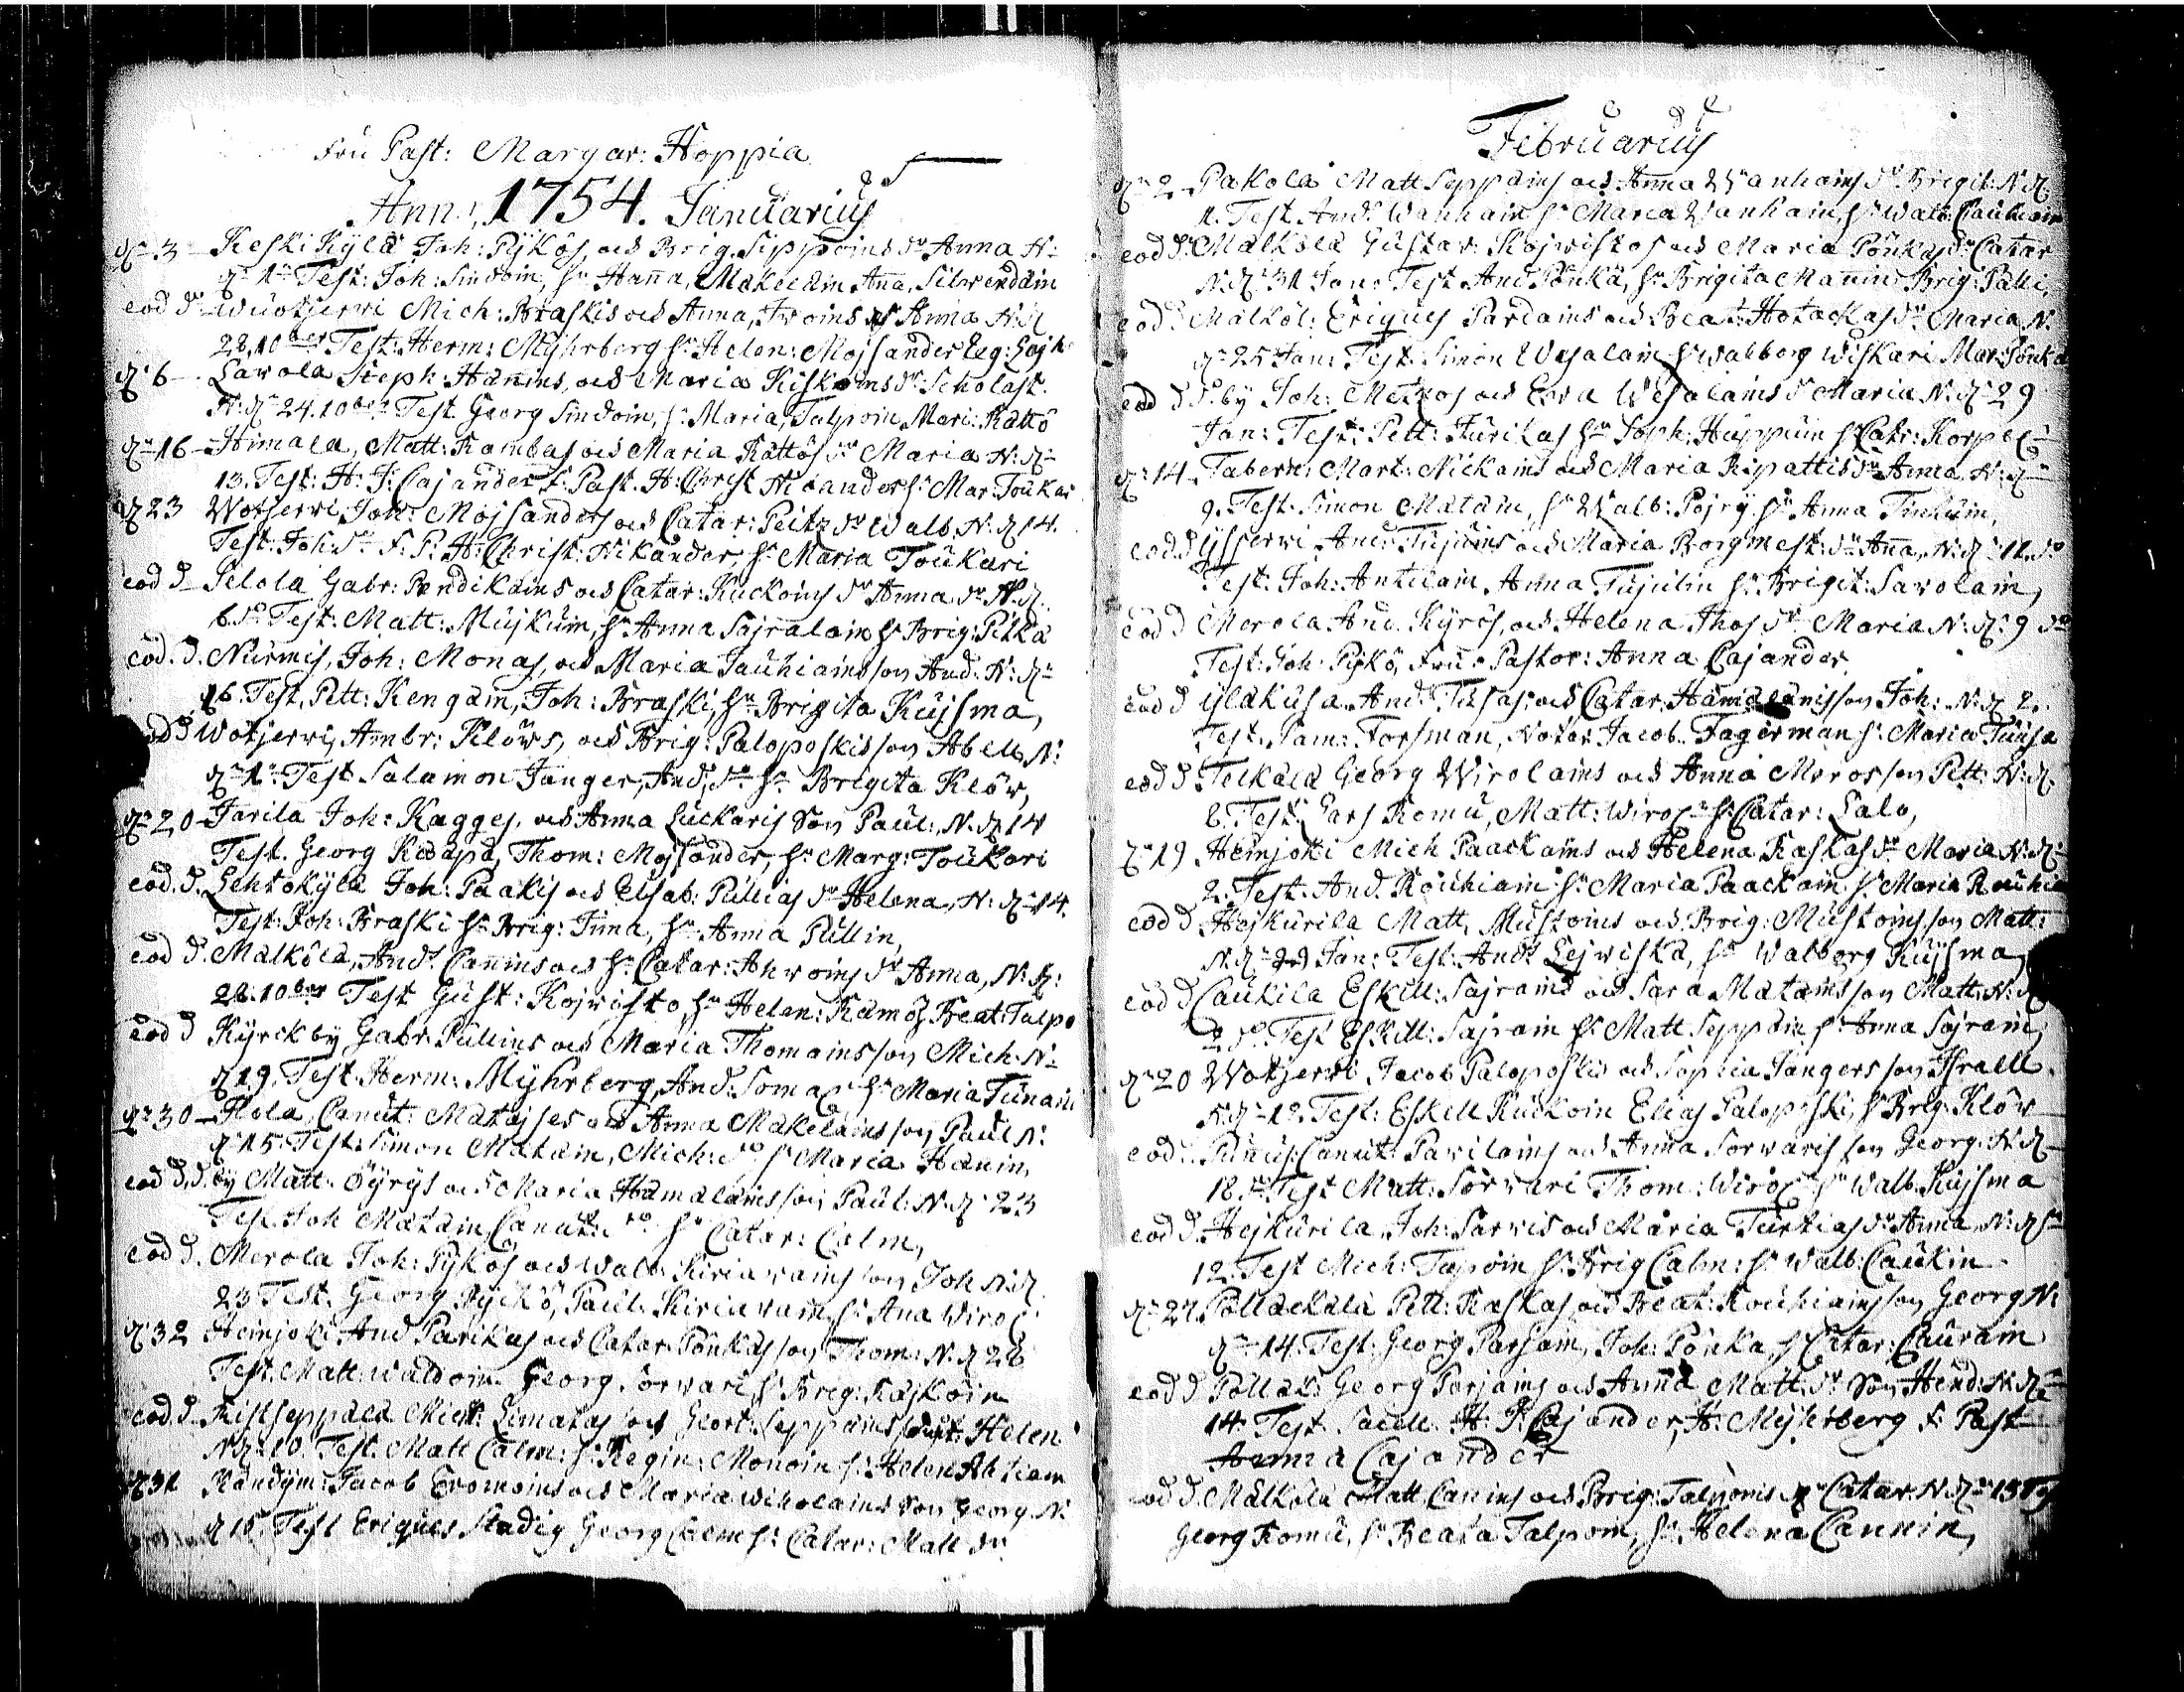 Fru Past: Margar: Hoppia
Anno 1754. Januarius
d. 3 Keski Kylä Joh: Pykös, och Brig. Sippoins dr Anna N.
d. 1 Test: Joh: Sindoin, hr Hanna, Makelain Anna, Silwendain
eod d. Wuotjerwi Mich: Braskis och Anna, Awoins dr Anna N. d.
28, 10ber Test: Herm: Myhrberg hr Helen: Mojsander
d. 6 Lavola Steph: Hannins, och Maria Kiskoins dr Scholast.
N: d. 24. 10ber Test. Georg Sindoin, hr Maria, Talpoin Mari: Kättö
d. 16 Himala, Matt: Kambas och Maria Kättös dr Maria N: d.
13. Test: H: J: Cajander, F: Past. H: Christ Nicander hr Mar: Toukar
d. 23 Wotjerwi, Joh: Mojsanders och Catar: Peitz dr Walb. N: d. 14.
Test: Joh. F: P: H: Christ: Nikander, hr Maria Toukari
eod d. Selola Gabr: Pendikains och Catar: Kuckoins dr Anna N: d.
6. Test: Matt: Muskuin, hr Anna Sajralain hr Brig: Pitkä
eod. d. Nurmis, Joh: Monas, och Maria Jauhiains son And. N: d.
16. Test. Pett: Kengäin, Joh: Braski, hr Brigita Kujsma,
eod d Wotjerwi, Ambr: Klöws, och Brig: Paloposkis son Abell N:
d. 1. Test Salamon Janger, And, hr Brigita Klöw,
d. 20 Jarila Joh: Kagges, och Anna Luckaris Son Paul: N: d. 14
Test. Georg Kiesapä, Thom: Mojsander, hr Marg: Toukari
eod. d. Lehtokylä Joh: Paakis och Elisab: Pullias dr Helena, N: d. 14.
Test: Joh: Braski hr Brig: Inna, hr Anna Pullin,
eod d. Mälkölä, And. Cannins och hr Catar: Ahwoins dr Anna, N: d:
28. 10ber Test Gust: Kojwisto, hr Helen: Kamös Beat: Talpo
eod d Kyrckby Gabr. Pullins och Maria Thomains son Mich. N:
d. 19. Test. Herm: Myhrberg, And: Somac hr Maria Tunain
d. 30 Ilola, Canut: Matojses och Anna Makelains son Paul N:
d. 15. Test: Simon Matain, Mich: hr Maria Hanin,
eod d. d. by Matt. Öyrys och Maria Hämäläins son Paul: N: d. 23
Test. Joh Matain, Canut: hr Catar: Calm,
eod d. Merola Joh: Pykös och Walb. Kiriawains son Joh N: d.
23 Test. Georg Pyckö, Paul. Kiriawain, hr Ana Wiroc
Heinjoki And Parikas och Catar. Pönkäs son Thom: N. d 28
Test. Matt: waldoin Georg Sorvari, hr Brig. Kajkoin
eod. d. Ristseppälä Mich: Limatas och Geort: Seppains Helen
N: d. 10. Test. Matt Calm: hr Regin: Monoin hr Helen Ahtiain
d. 31 Kandym: Jacob Eromoins och Maria wiholains son Georg N:
d 15. Test Eriques Stadig Georg Calm hr Catar: Matt dr
Februarius
d. 2 Pakola Matt Seppäins och Anna Wanhains dr Brigit: N. d.
1. Test. And. Wanhain hr Maria Wanhain, hr Walb: Cauhain
eod d. Mälkölä Gustav: Kojwistos och Maria Pönkäs dr Catar
N. d. 31 Jan: Test And Pönkä, hr Brigita Mannin Brig: Palli,
eod d. Mälköl: Eriques Pardains och Beat: Hotackas dr Maria N.
d. 25 Jan: Test. Simon Wesalain hr Walborg Wiskari Mar: Pönkä
eod d d. by Joh: Metzos och Ewa Wesalains dr Maria N. d. 29
Jan: Test: Pett: Jurikas hr Soph: Huppuin hr Catr: Korpe
d. 14 Tabern: Mart: Nickains och Maria Ripattis dr Anna, N: d.
9. Test. Simon Matain, hr Walb: Pojry hr Anna Tiuhuin,
eod. d Yjserwi And: Tujulins och Maria Borgmest: dr Anna, N: d. 12.
Test: Joh: Antilain, Anna Tujulin hr Brigit: Savolain,
eod d Merola And. Kyrös, och Helena Thos dr Maria N: d: 9
Test. Joh: Pykö, Fru Pastor: Anna Cajander
eod d Yläkusa And: Tusas och Catar. Hämäläins son Joh: N: d. 2.
Test. Sam: Forsman, Notar Jacob Fagerman hr Maria Tuusa
eod d. Telkälä Georg Wirolains och Anna Meros son Pett: N: d.
8. Test Lars Romu, Matt: Wiroc hr Catar: Lalo,
d. 19 Heinjoki Mich Paackains och Helena Kaskas dr Maria N: d.
2. Test. And. Kouhiain hr Maria Paackain hr Maria Rouhia
eod d. Hejkurila Matt. Mustoins och Brig: Mustoins son Matt:
N. d. 29 Jan: Test. And. Lejwiskä, hr Walborg Kujsma,
eod d Caukila Eskill: Sajrains och Sara Matains son Matt. N. d.
2. Test Eskill: Sajrain hr Matt Seppäin hr Anna Sajrain,
d. 20 Wotjerwi Jacob Paloposkis och Sophia Jangers son Israell.
N. d. 12. Test: Eskell Kuckoin Elias Paloposki, hr Brig: Klöw
eod d. Punnus Canut: Pavilains och Anna Sorvaris son Georg: N. d.
18. Test Matt: Sorvari Thom: Wiroc hr Walb. Kujsma
eod d. Hejkurila, Joh: Sarvis och Maria Turkias dr Anna, N: d.
12. Test Mich: Tapoin hr Brig Calm: hr Walb: Caukin
d. 27. Pölläckälä Pett: Kaskas, och Beat: Kouhiains son Georg N:
d. 14. Test: Georg Parsain, Joh: Pönkä, hr Catar: Caurain
eod d Pölläk: Georg Parjains och Anna Matt: dr Son Hend: N. d.
14. Test. Sacell. H: J: Cajander, H: Myhrberg F: Past
Anna Cajander
eod d. Mälkölä Matt Canins och Brig: Talpoins dr Catar. N. d. 13
Georg Romu, hr Beata Talpoin, hr Helena Cannin,